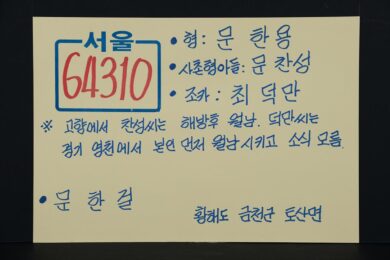 서울
64310
• 형: 문 한용
• 사촌형아들: 문 찬성
• 조카: 최 덕만
※ 고향에서 찬성씨는 해방후 월남. 덕만씨는
경기 영천에서 본인 먼저 월남시키고 소식 모름.
• 문 한걸
황해도 금천군 토산면